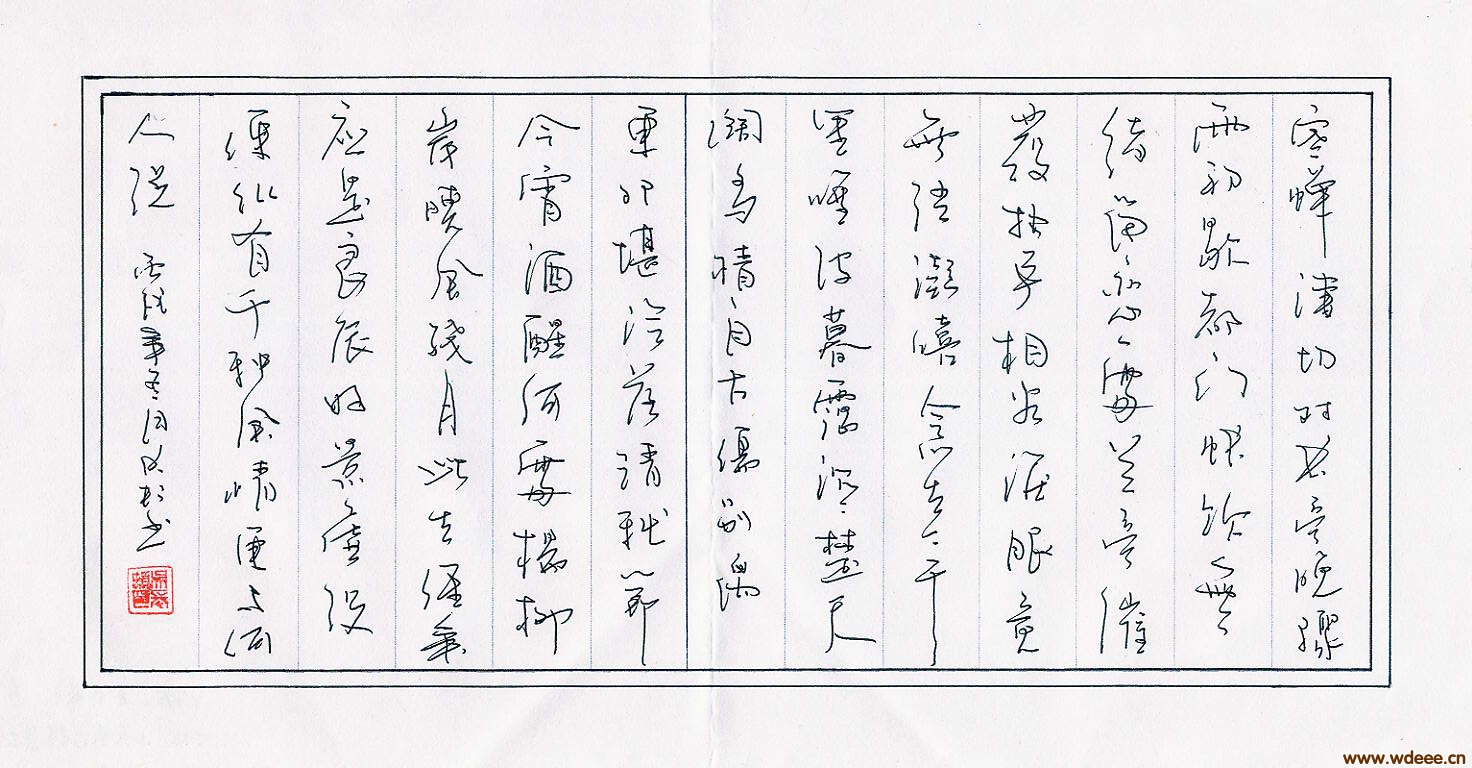 寒蟬凄切对长亭晚骤
雨初歇都门帐饮無
绪留恋處兰舟催
發执手相看泪眼竟
無语凝噎念去去千
里煙波暮靄沉沉楚天
阔多情自古傷别離
更那堪冷落清秋節
今宵酒醒何處楊柳
岸曉風残月此去经年
应是良辰好景虚设
便纵有千种風情更与何
人说 丙戌年 书
www.wdeee.cn